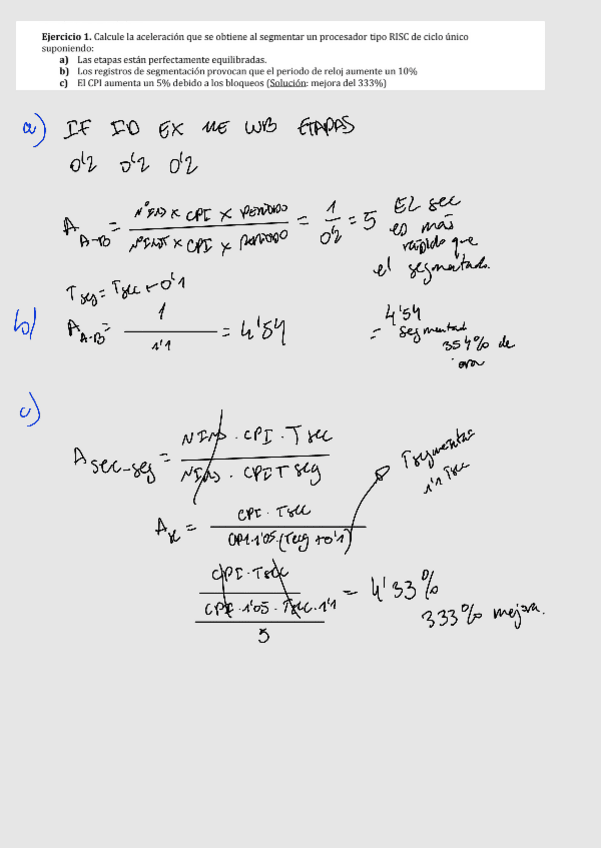 Ejercicio 1. Calcule la aceleración que se obtiene al segmentar un procesador tipo RISC de ciclo único
suponiendo:
a) Las etapas están perfectamente equilibradas.
b) Los registros de segmentación provocan que el periodo de reloj aumente un 10%
c) El CPI aumenta un 5% debido a los bloqueos (Solución: mejora del 333%)
a) IF ID EX ME WB ETAPAS
0'2 0'2 0'2
A A-B = NºINS x CPI x PERIODO / NºINST x CPI x PERIODO = 1 / 0'2 = 5 EL sec
es más
rápido que
el segmentado.
T seg = T sec + 0'1
b) A A-B = 1 / 1'1 = 4'54
4'54
= segmentad
354% de
c)
A sec-seg = NINS · CPI · T sec / NINS · CPI T seg
T segmentas
1'1 Tsec
A = CPI · Tsec / CPI 1'05 · (Tseg + 0'1)
CPI · Tsec / CPI · 1'05 · Tsec · 1'1 / 5 = 4'33%
333% mejora.